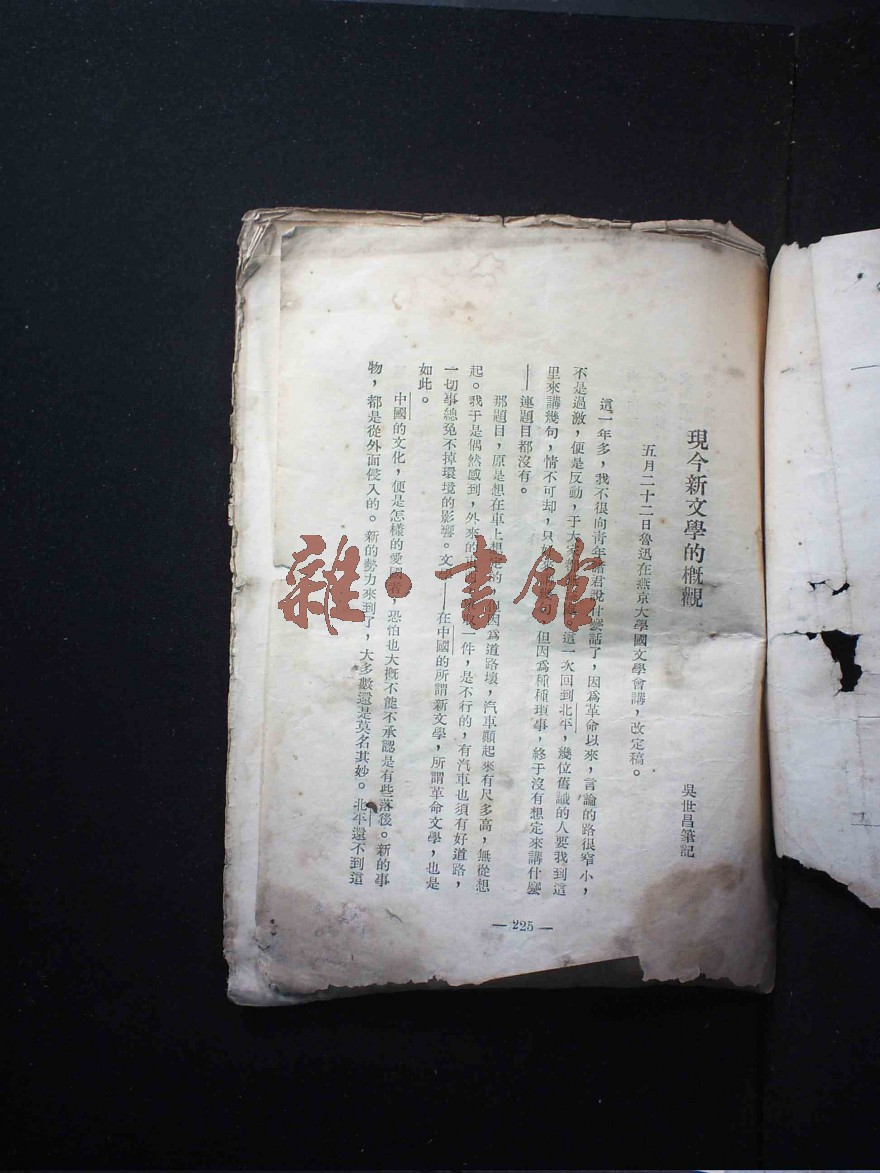 現今新文學的概觀
吳世昌筆記
五月二十二日魯迅在燕京大學國文學會講，改定稿。
這一年多，我不很向青年諸君說什麼話了，因為革命以來，言論的路很窄小，
不是過激，便是反動，于大家 這一次回到北平，幾位舊識的人要我到這
里來講幾句，情不可却，只 但因為種種瑣事，終于沒有想定來講什麼
——連題目都沒有。
那題目，原是想在車上想定的，但因為道路壞，汽車顛起來有尺多高，無從想
起。我于是偶然感到，外來的 一件，是不行的，有汽車也須有好道路，
一切事總免不掉環境的影響。文 ——在中國的所謂新文學，所謂革命文學，也是
如此。
中國的文化，便是怎樣的愛國者，恐怕也大概不能不承認是有些落後。新的事
物，都是從外面侵入的。新的勢力來到了，大多數還是莫名其妙。北平還不到這
— 225 —
雜·書館